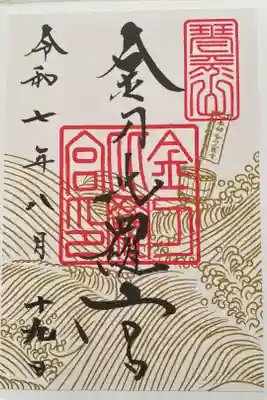 金刀比羅宮
令和七年八月十九日
金刀比羅宮印